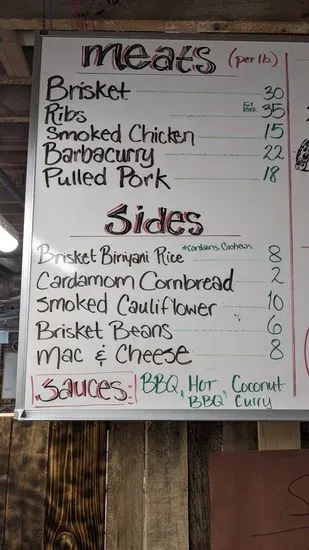 meats (per lb.)
Brisket 30
Ribs 35
Smoked Chicken 15
Barbacurry 22
Pulled Pork 18
Sides
Brisket Biriyani Rice *contains Cashews 8
Cardamom Cornbread 2
Smoked Cauliflower 10
Brisket Beans 6
Mac & Cheese 8
Sauces: BBQ, Hot BBQ, Coconut Curry